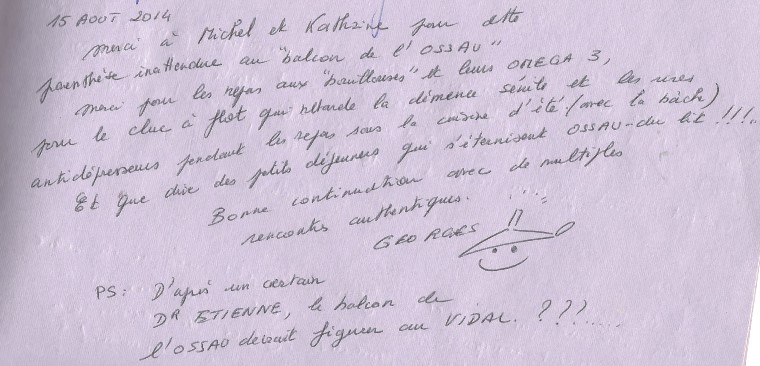 15 AOUT 2014
merci à Michel et Kathrine pour cette
parenthèse inattendue au "balcon de l'OSSAU"
merci pour les repas aux "bouilleuses" et leurs OMEGA 3,
pour le clue à flot qui retarde la démence sénile et les rires
antidépresseurs pendant les repas sous la cuisine d'été (avec la bâche)
Et que dire des petits déjeuners qui s'éternisent OSSAU-du lit !!!..
Bonne continuation avec de multiples
rencontres authentiques.
GEORGES
PS: D'après un certain
DR ETIENNE, le balcon de
l'OSSAU devrait figurer au VIDAL. ???......